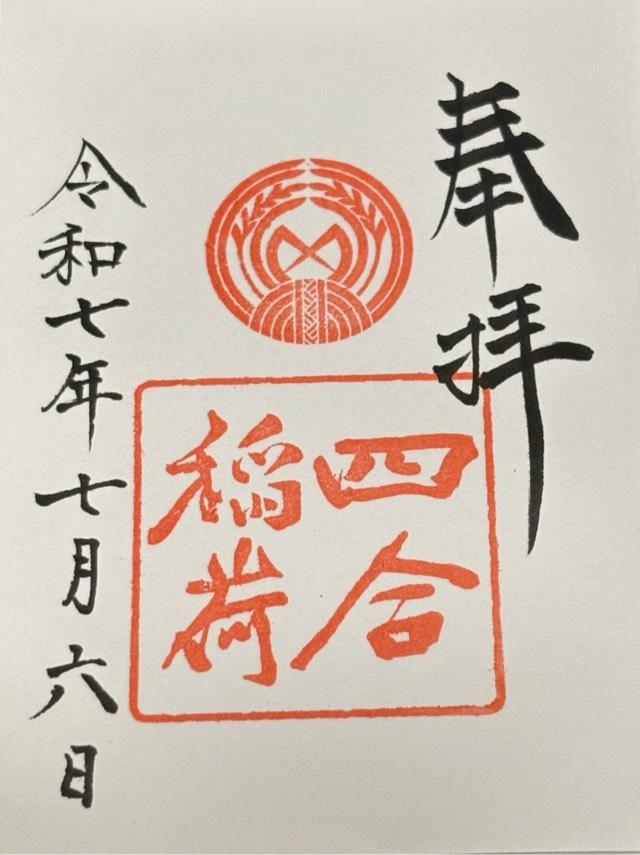 奉拝
四合
稲荷
令和七年七月六日